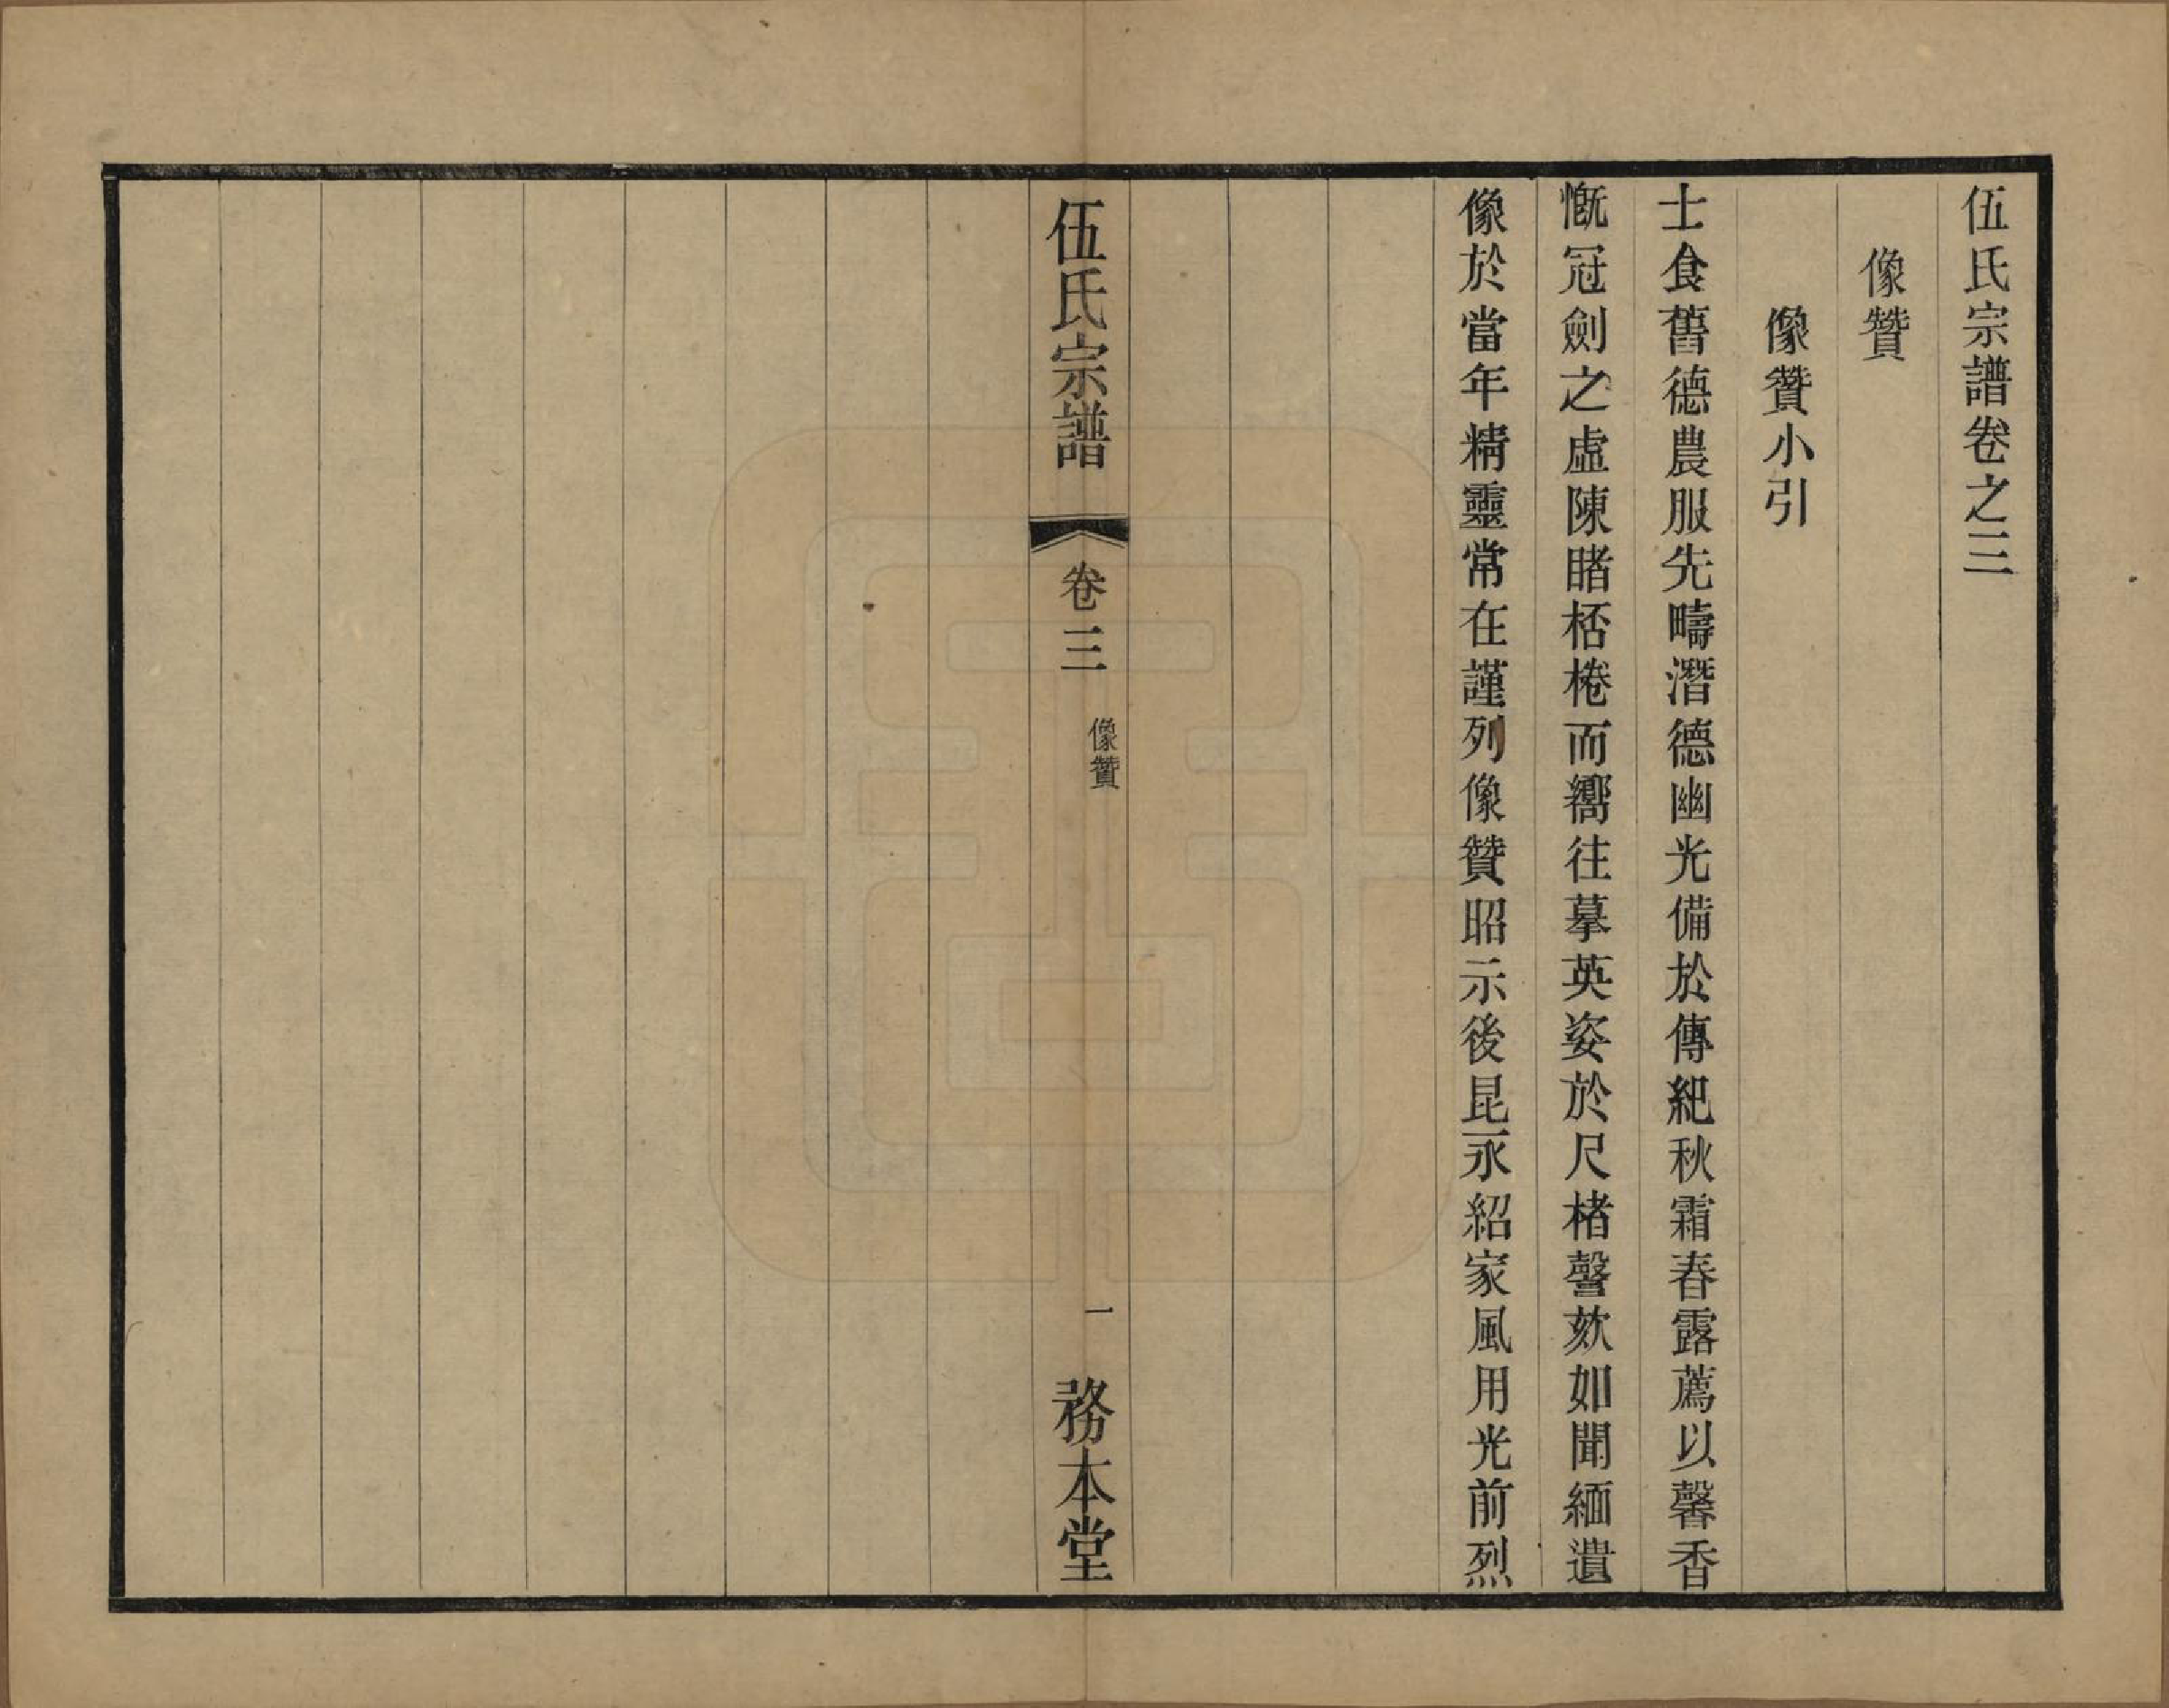 伍氏宗譜卷之三
像贊
像贊小引
士食舊德農服先疇潛德幽光備於傳紀秋霜春露薦以馨香
慨冠劍之虛陳睹桮棬而嚮往摹英姿於尺楮謦欬如聞緬遺
像於當年精靈常在謹列像贊昭示後昆永紹家風用光前烈
伍氏宗譜 卷三 像贊 一 務本堂